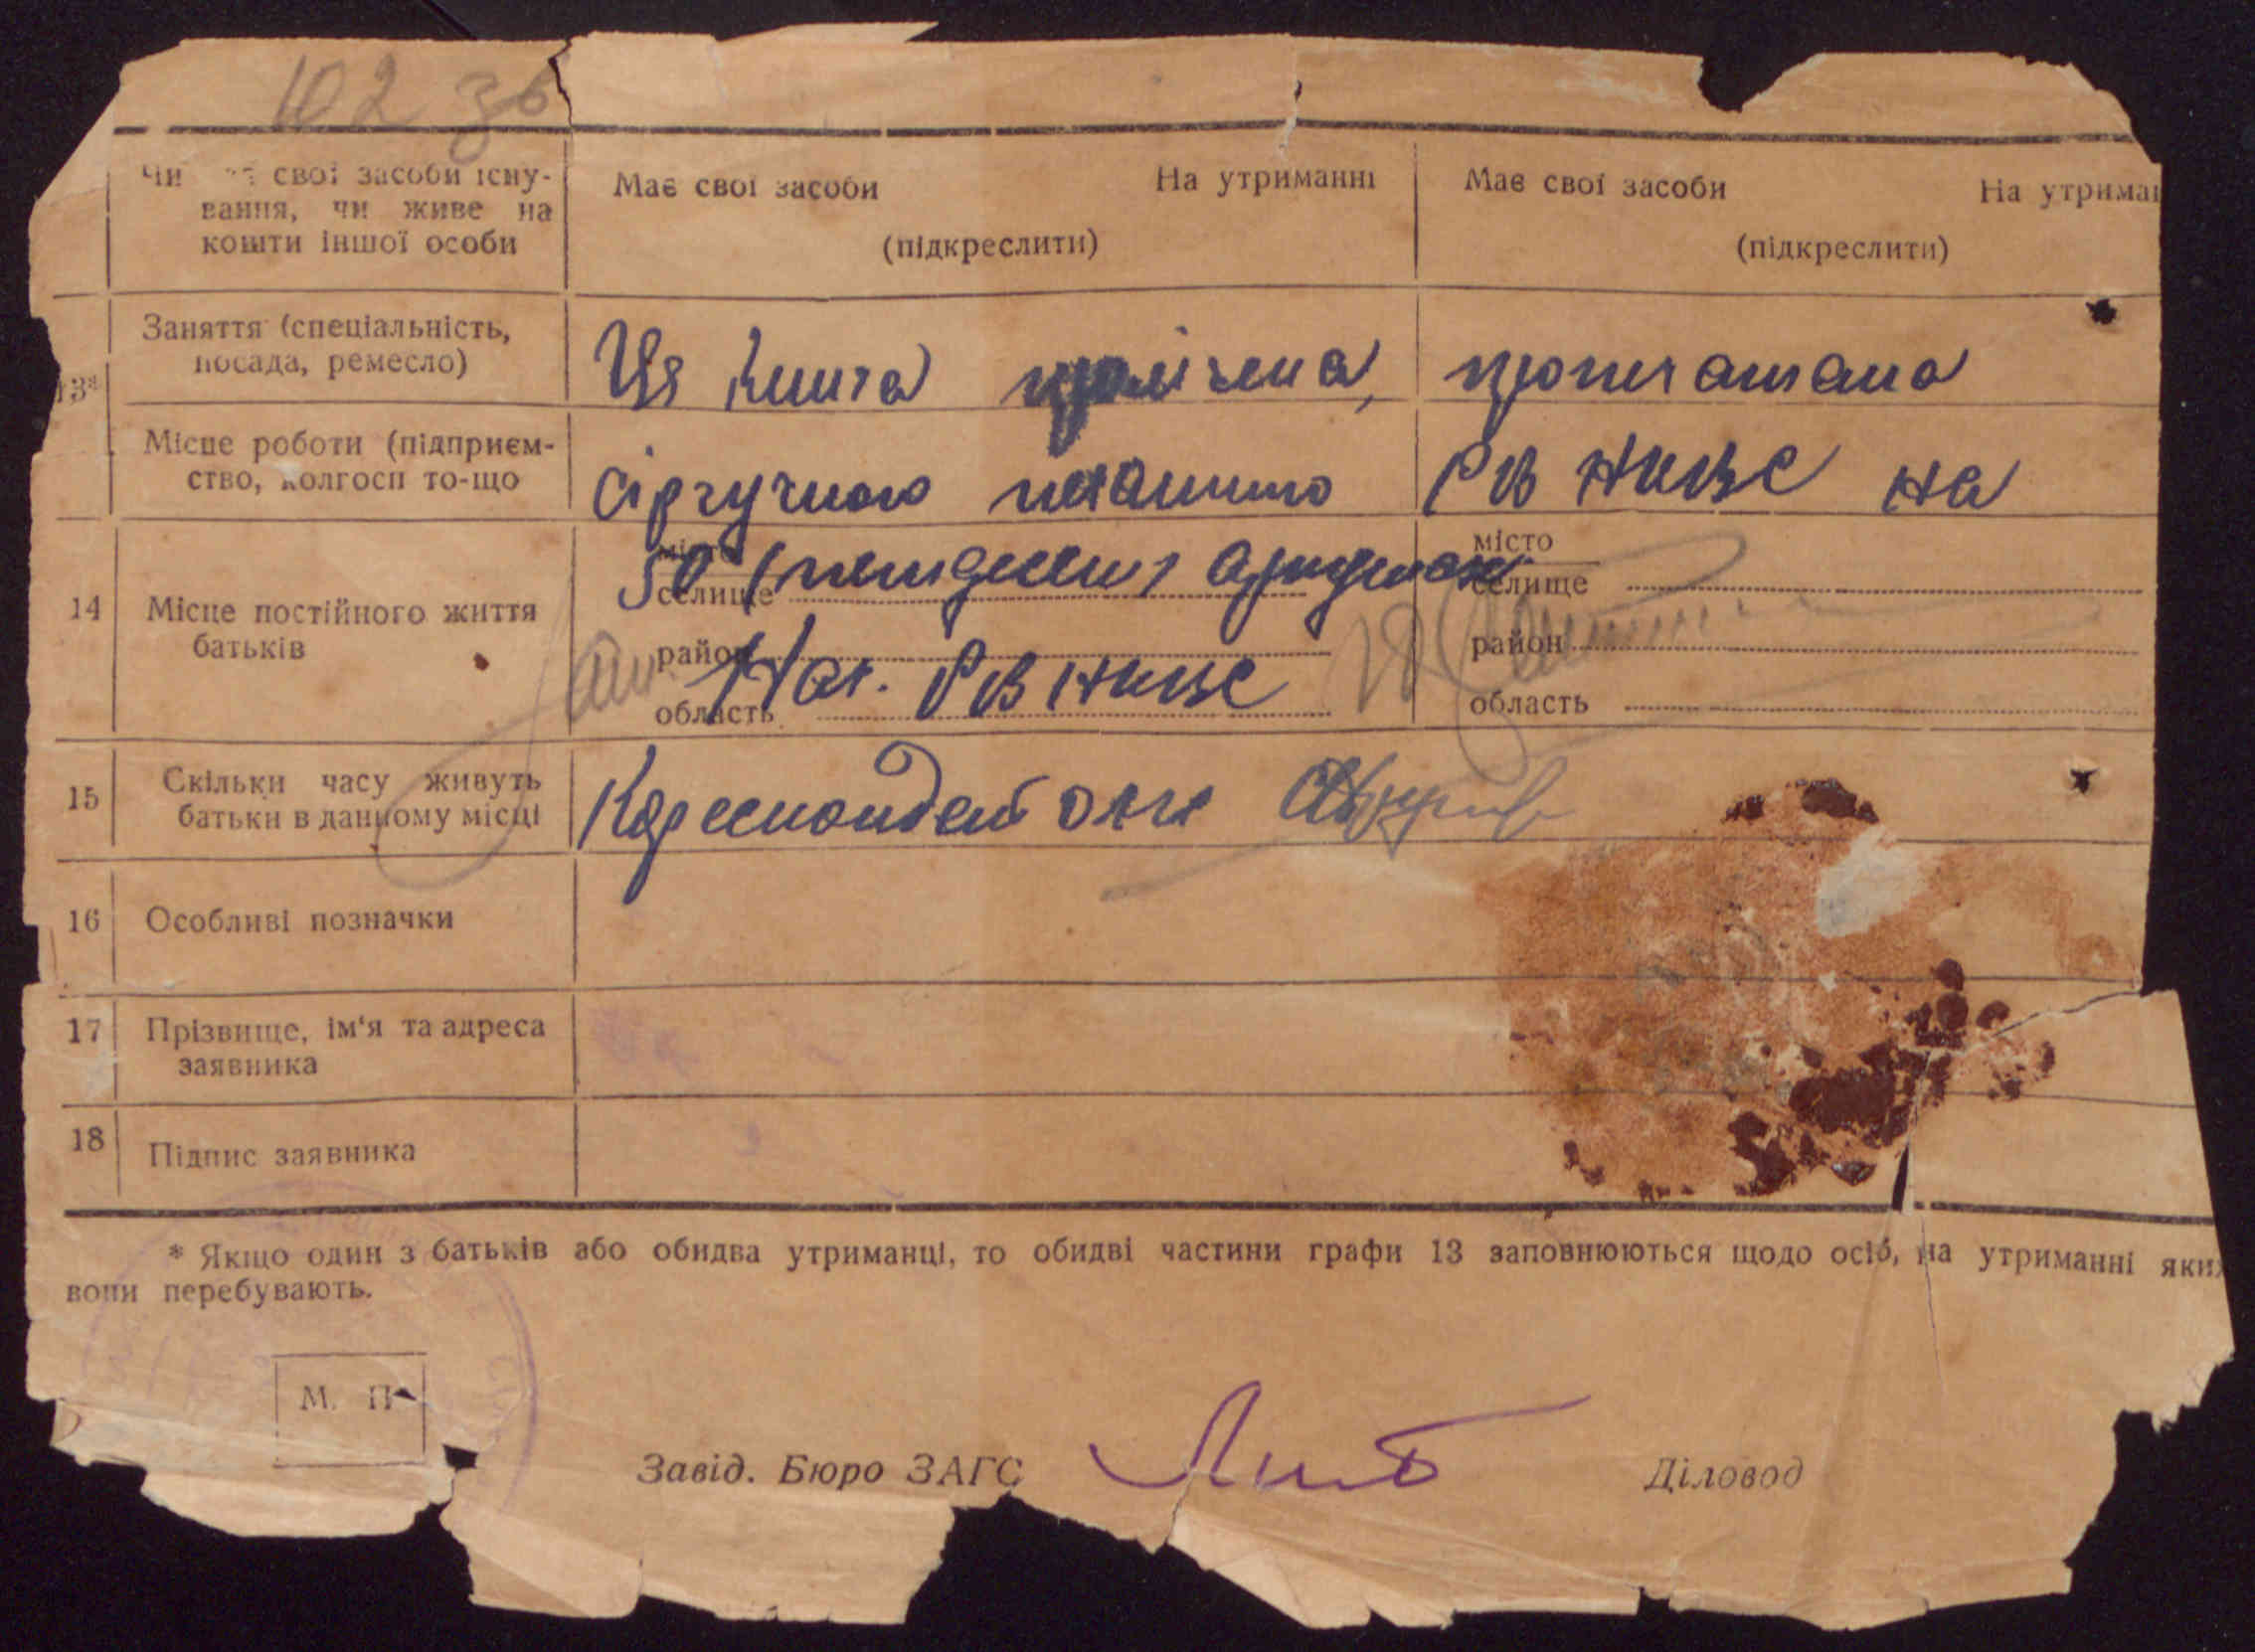 102 зб
Чи свої засоби існу-
вання, чи живе на
кошти іншої особи
Має свої засоби На утриманні
(підкреслити)
Має свої засоби На утриман
(підкреслити)
13*
Заняття (спеціальність,
посада, ремесло)
Ця книга пролічена, пропечатана
Місце роботи (підприєм-
ство, колгосп то-що
сіргучною печаттю РВ НКВС на
14
Місце постійного життя
батьків
місто
селище
район
область
50 (пятдесят) аркушах
Нач. РВ НКВС
місто
селище
район
область
15
Скільки часу живуть
батьки в данному місці
Кореспондент
16
Особливі позначки
17
Прізвище, ім'я та адреса
заявника
18
Підпис заявника
* Якщо один з батьків або обидва утриманці, то обидві частини графи 13 заповнюються щодо осіб, на утриманні яких
вони перебувають.
М. П.
Завід. Бюро ЗАГС
Діловод